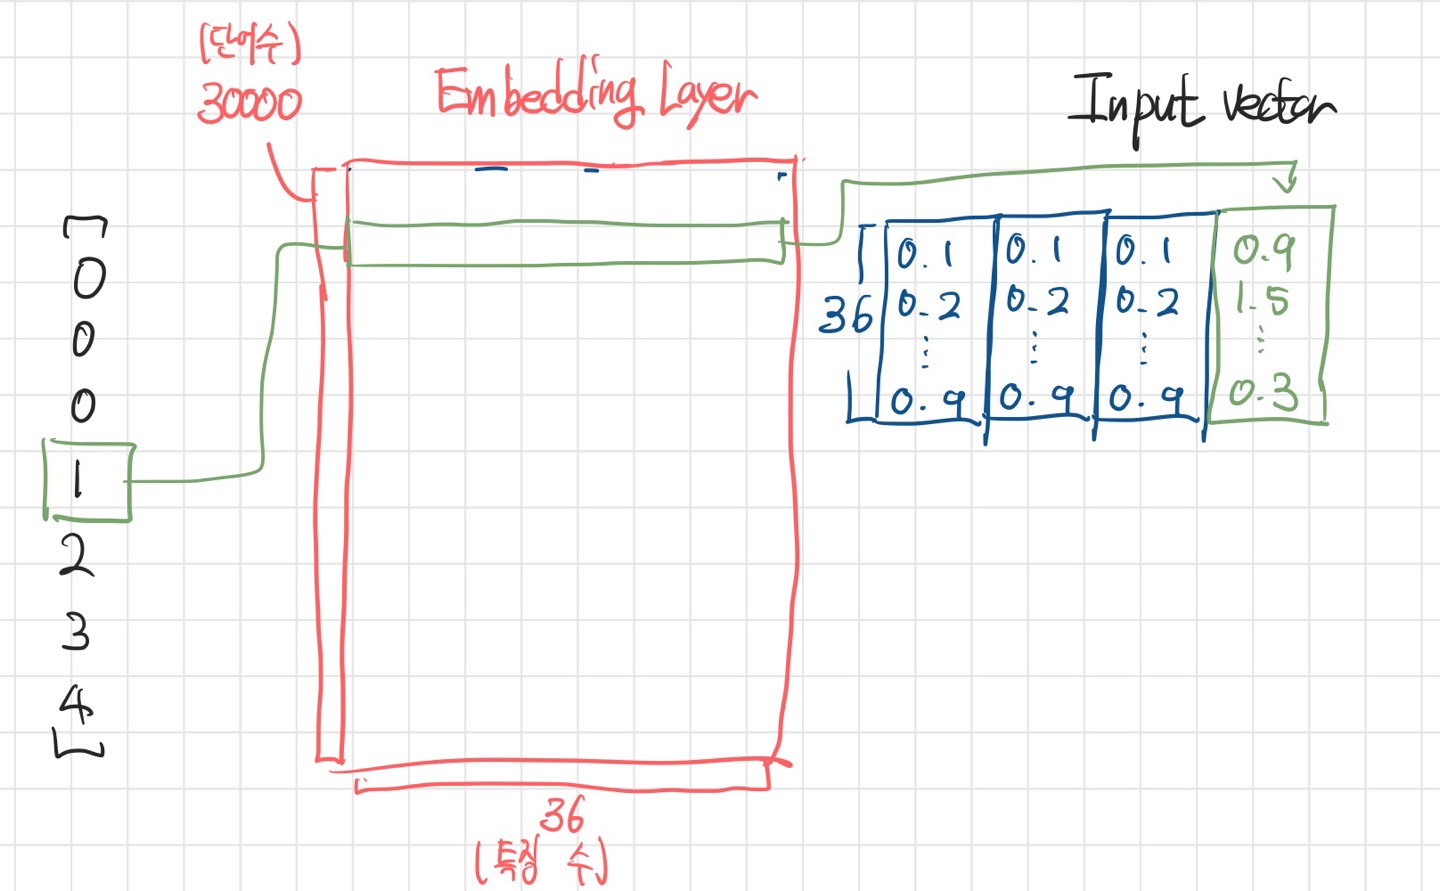 (단어수)
30000
Embedding Layer
Input vector
[
0
0
0
1
2
3
4
]
36
0.1 0.1 0.1 0.9
0.2 0.2 0.2 1.5
⋮ ⋮ ⋮ ⋮
0.9 0.9 0.9 0.3
36
(특징 수)